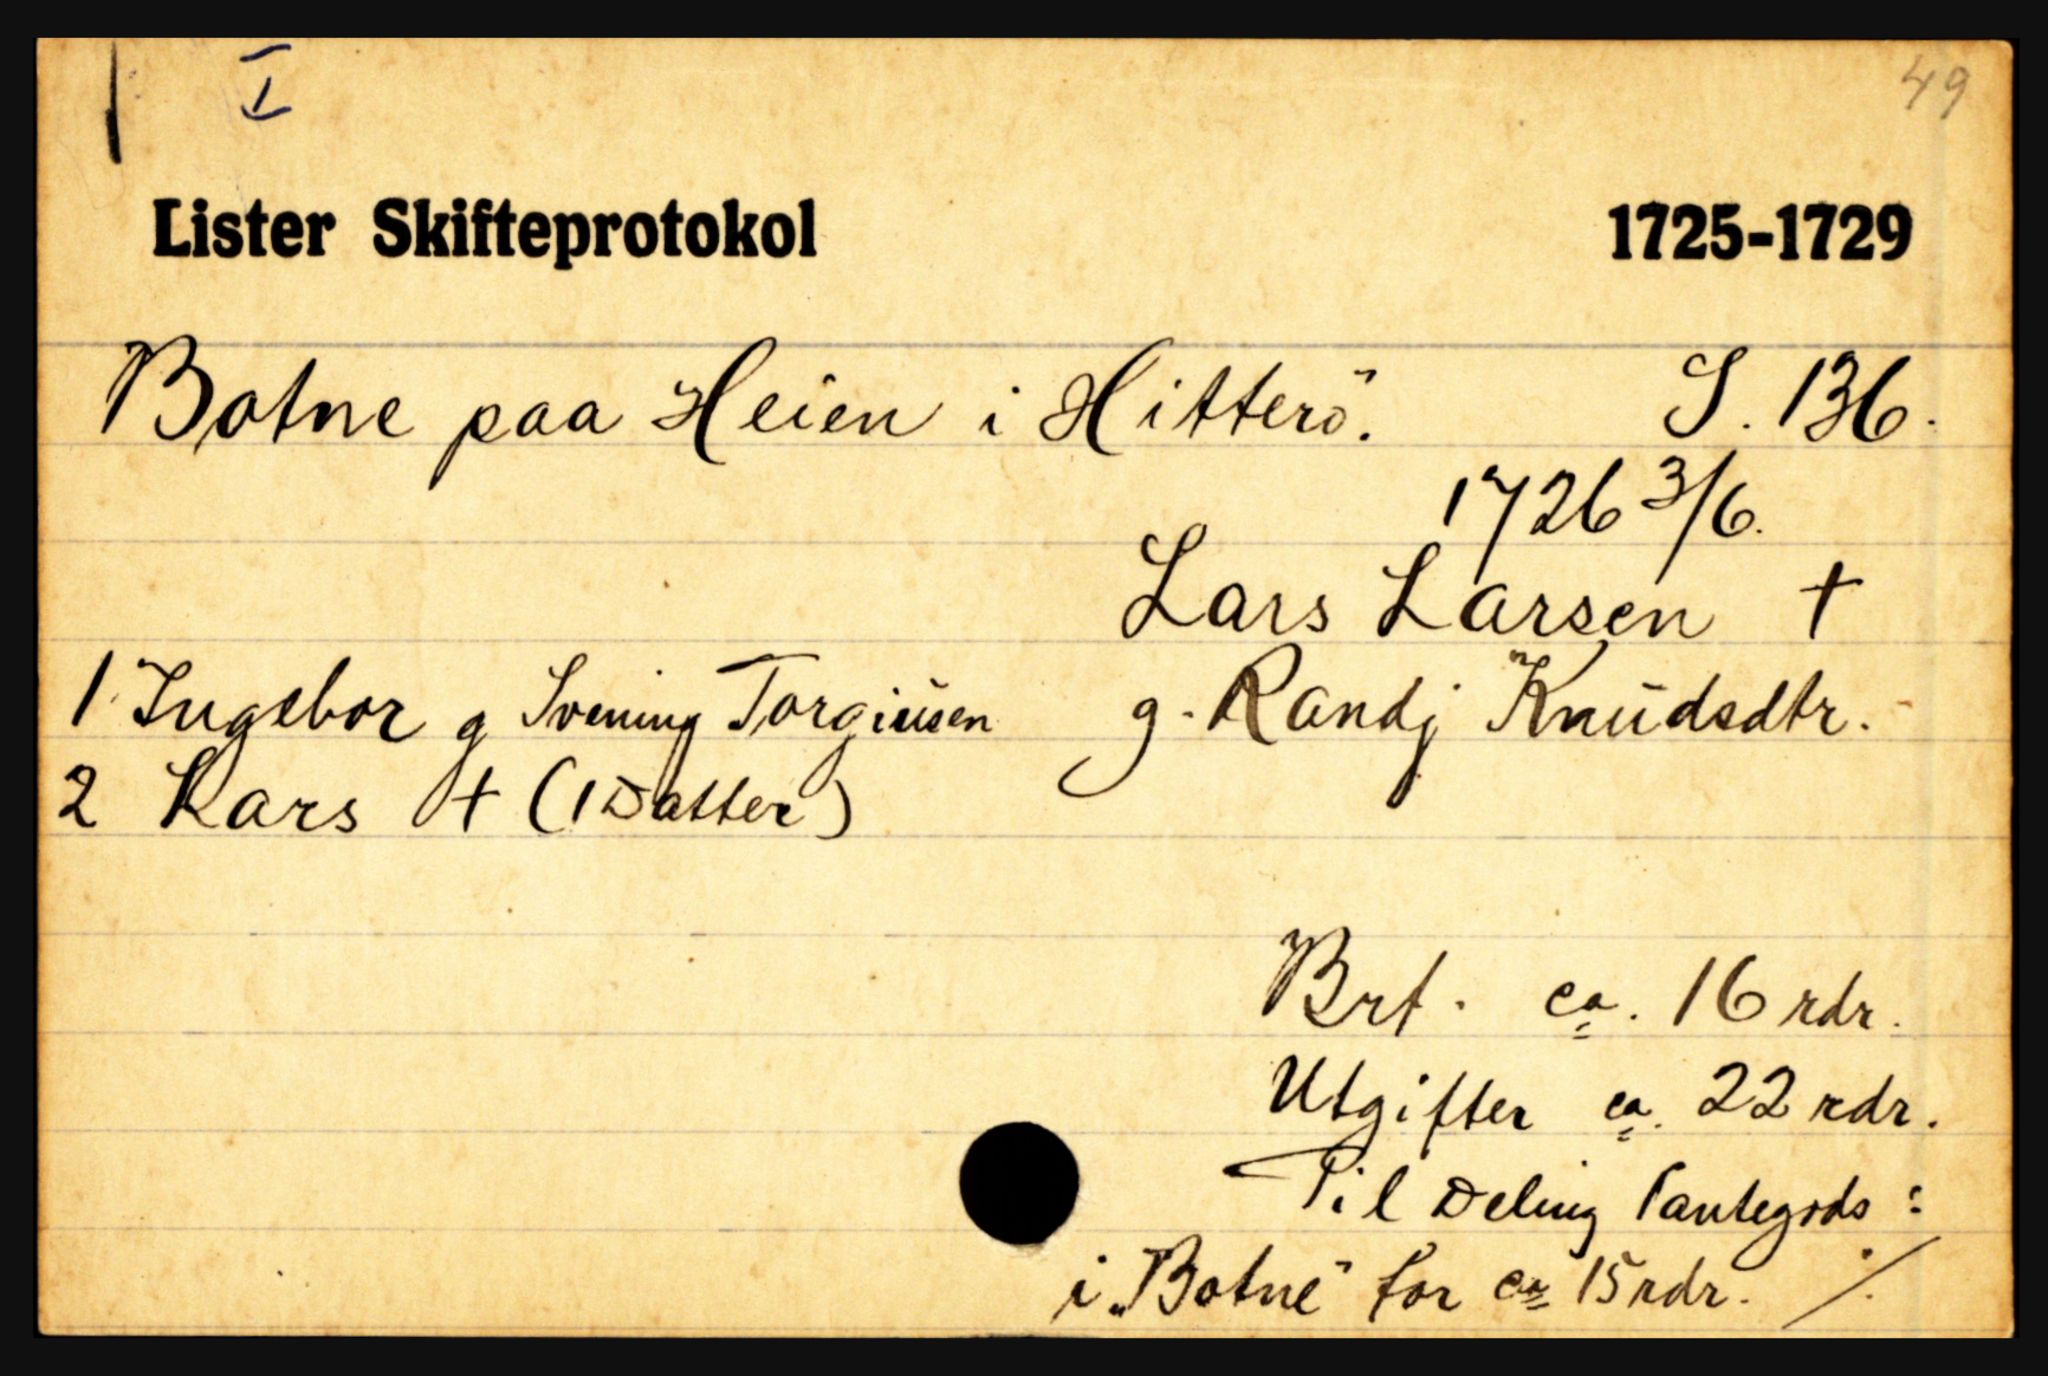 I
49
Lister Skifteprotokol 1725-1729
Botne paa Heien i Hitterö. S. 136.
1726 3/6.
Lars Larsen †
1 Ingebor g Svening Torgiusen g. Randj Knudsdtr.
2 Lars † (1 Datter)
Brt. ca. 16 rdr.
Utgifter ca. 22 rdr.
Til Deling Pantegods :
i „Botne" for ca 15 rdr. ./.